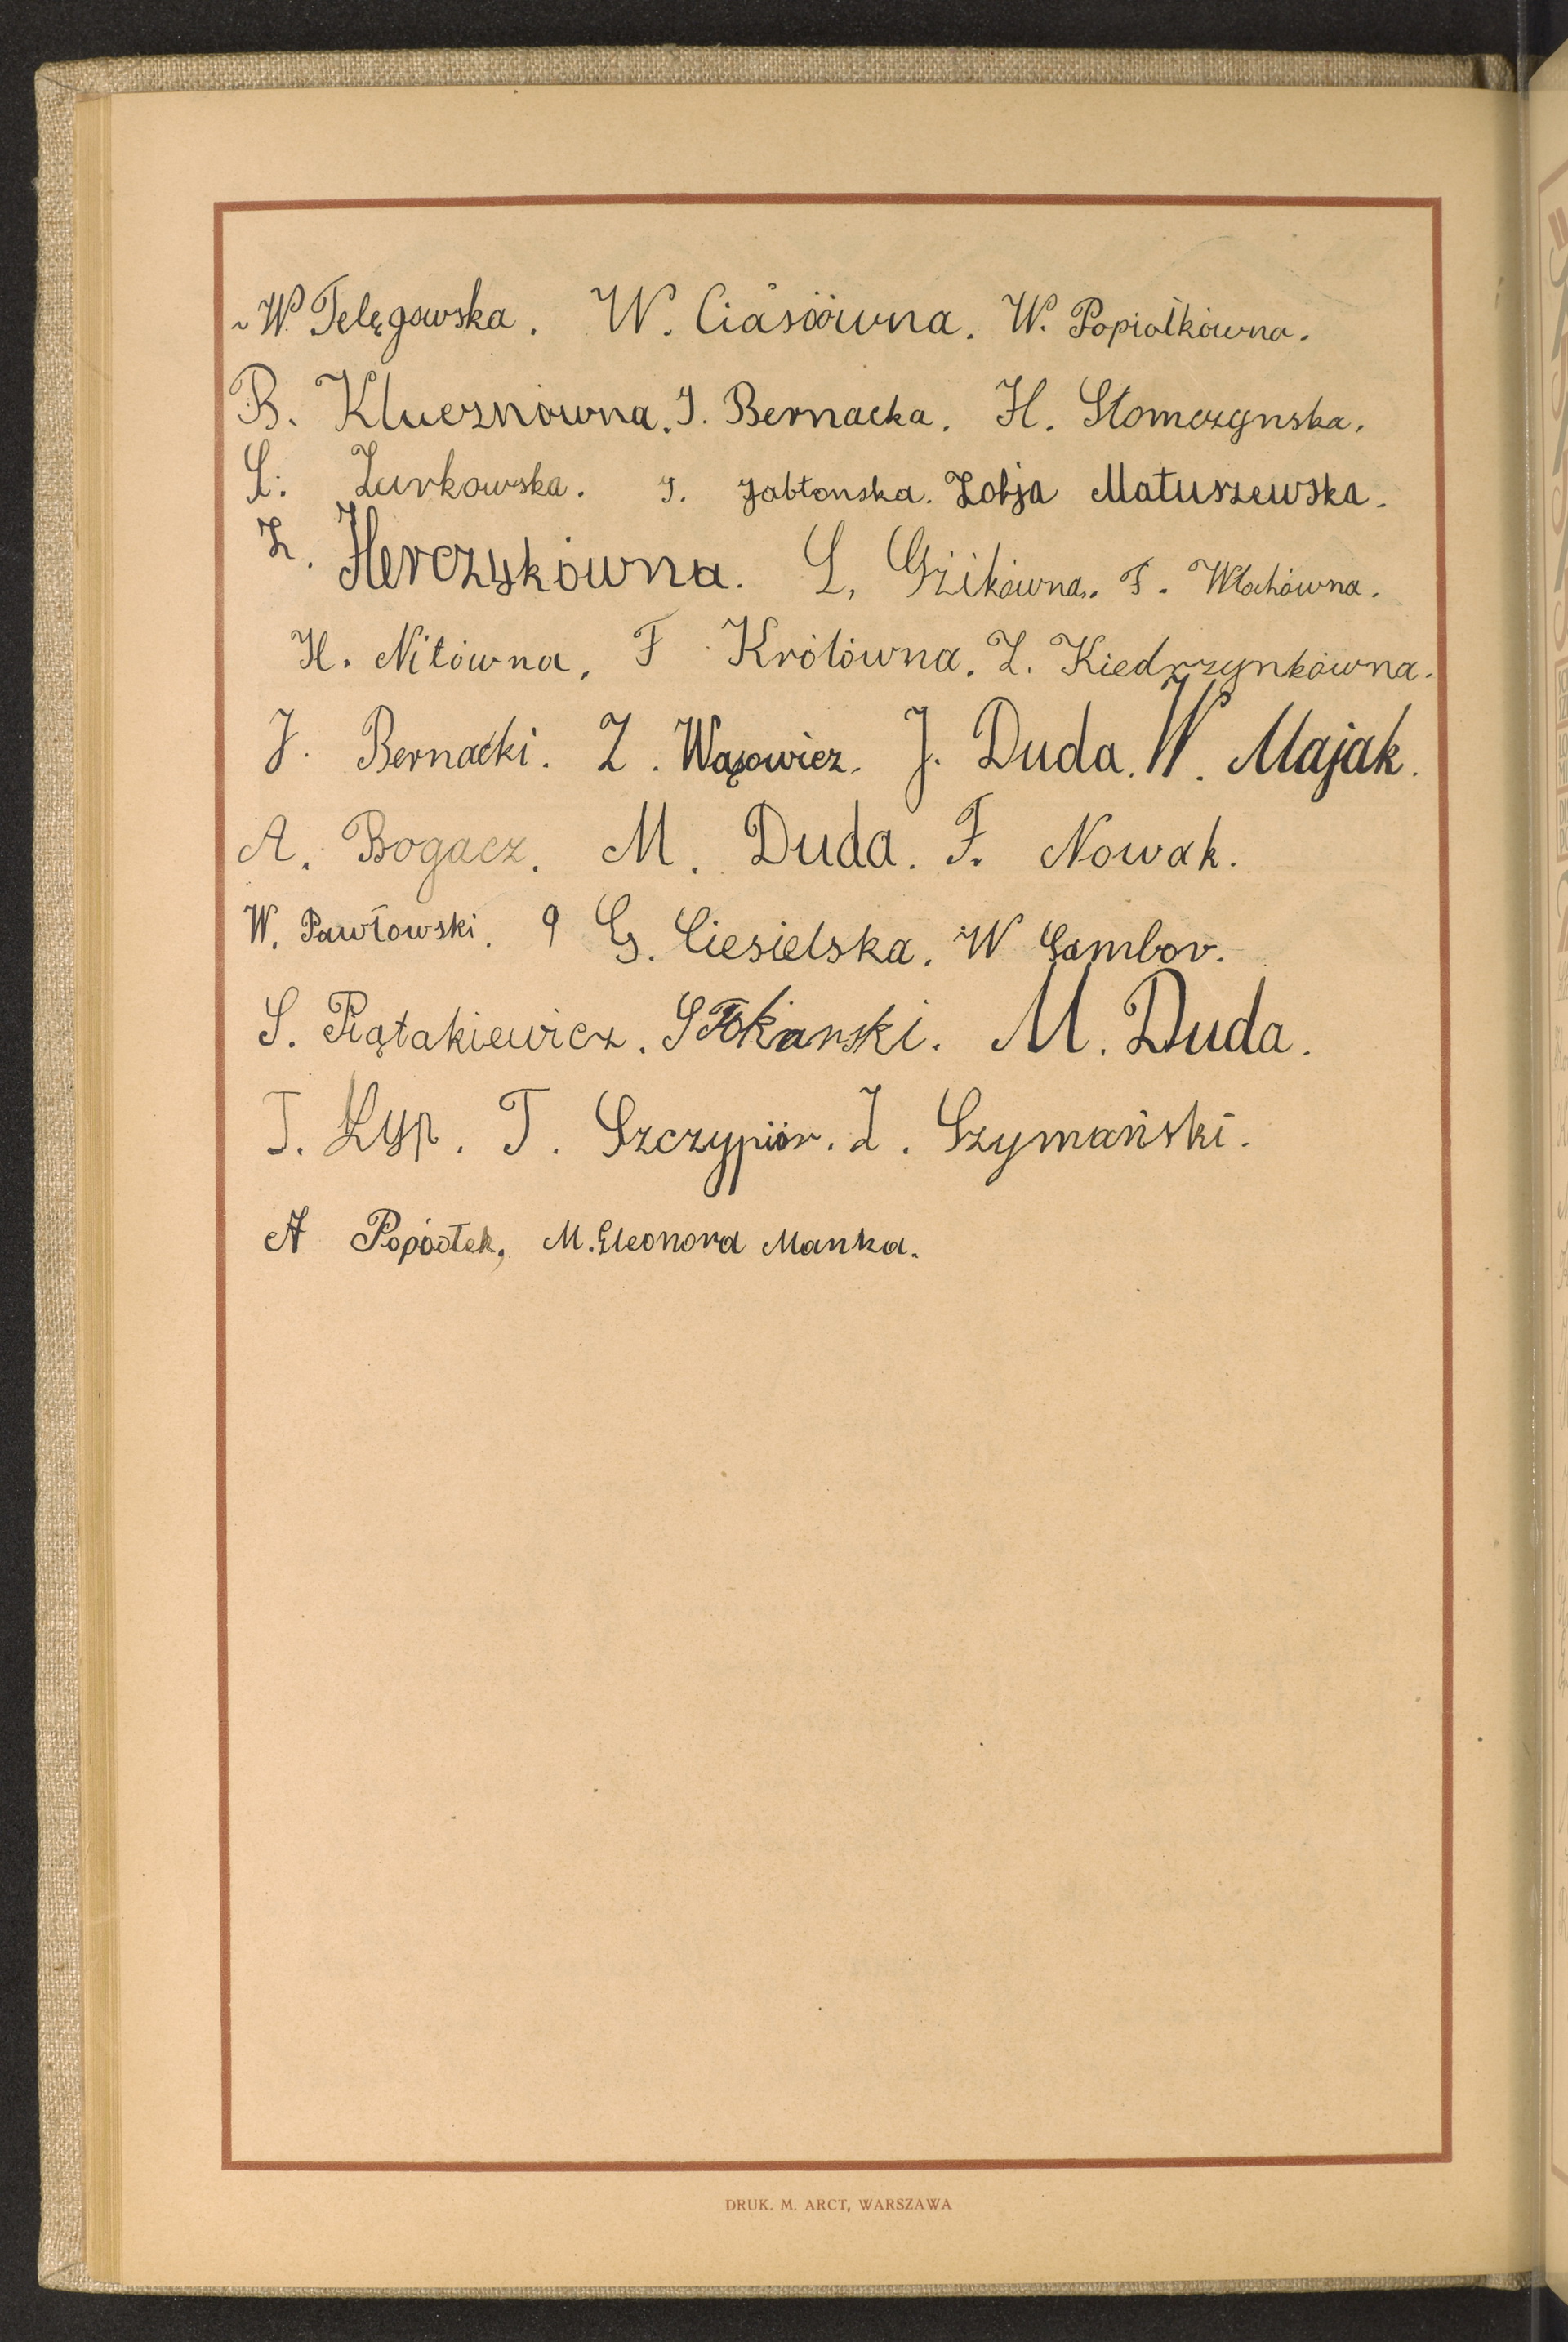 W. Telęgowska. W. Ciasiówna. W. Popiołkówna.
B. Kluesznówna. J. Bernacka. H. Słomczynska.
L. Żurkowska. J. Jabłonska. Zofja Matuszewska.
Z. Herczykówna. L. Gzikówna. F. Włochówna.
H. Nitówna, F Królówna. Z. Kiedrzynkówna.
J. Bernacki. Z. Wąsowicz. J. Duda. W. Majak.
A. Bogacz. M. Duda. F. Nowak.
W. Pawłowski. G. Ciesielska. W Gambor.
S. Piątakiewicz. S Tokarski. M. Duda.
T. Łyp. T. Szczypiór. Z. Szymański.
A M. Eleonora Manka.
DRUK. M. ARCT, WARSZAWA